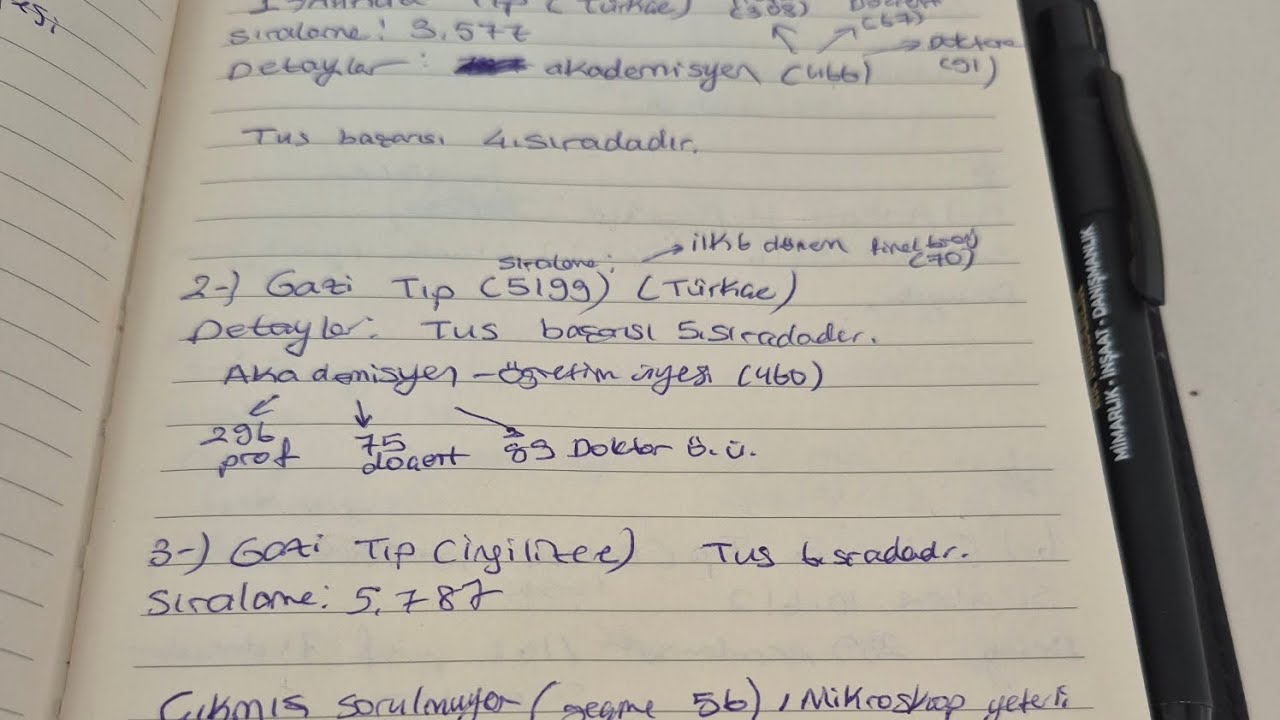 Tıp (Türkçe) (308) Doçent
(67)
sıralama: 3.577
Doktora
(91)
Detaylar: akademisyen (466)
Tus başarısı 4.sıradadır.
sıralama: → ilk 6 dönem final barajı
(70)
2-) Gazi Tıp (5199) (Türkçe)
Detaylar: Tus başarısı 5.sıradadır.
Akademisyen - öğretim üyesi (460)
296 75 89 Doktor Ö.Ü.
prof doçent
3-) Gazi Tıp (ingilizce) Tus 6.sıradadır.
Sıralama: 5.787
Çıkmış sorulmuyor (geçme 56), Mikroskop yeterli
MİMARLIK - İNŞAAT - DANIŞMANLIK